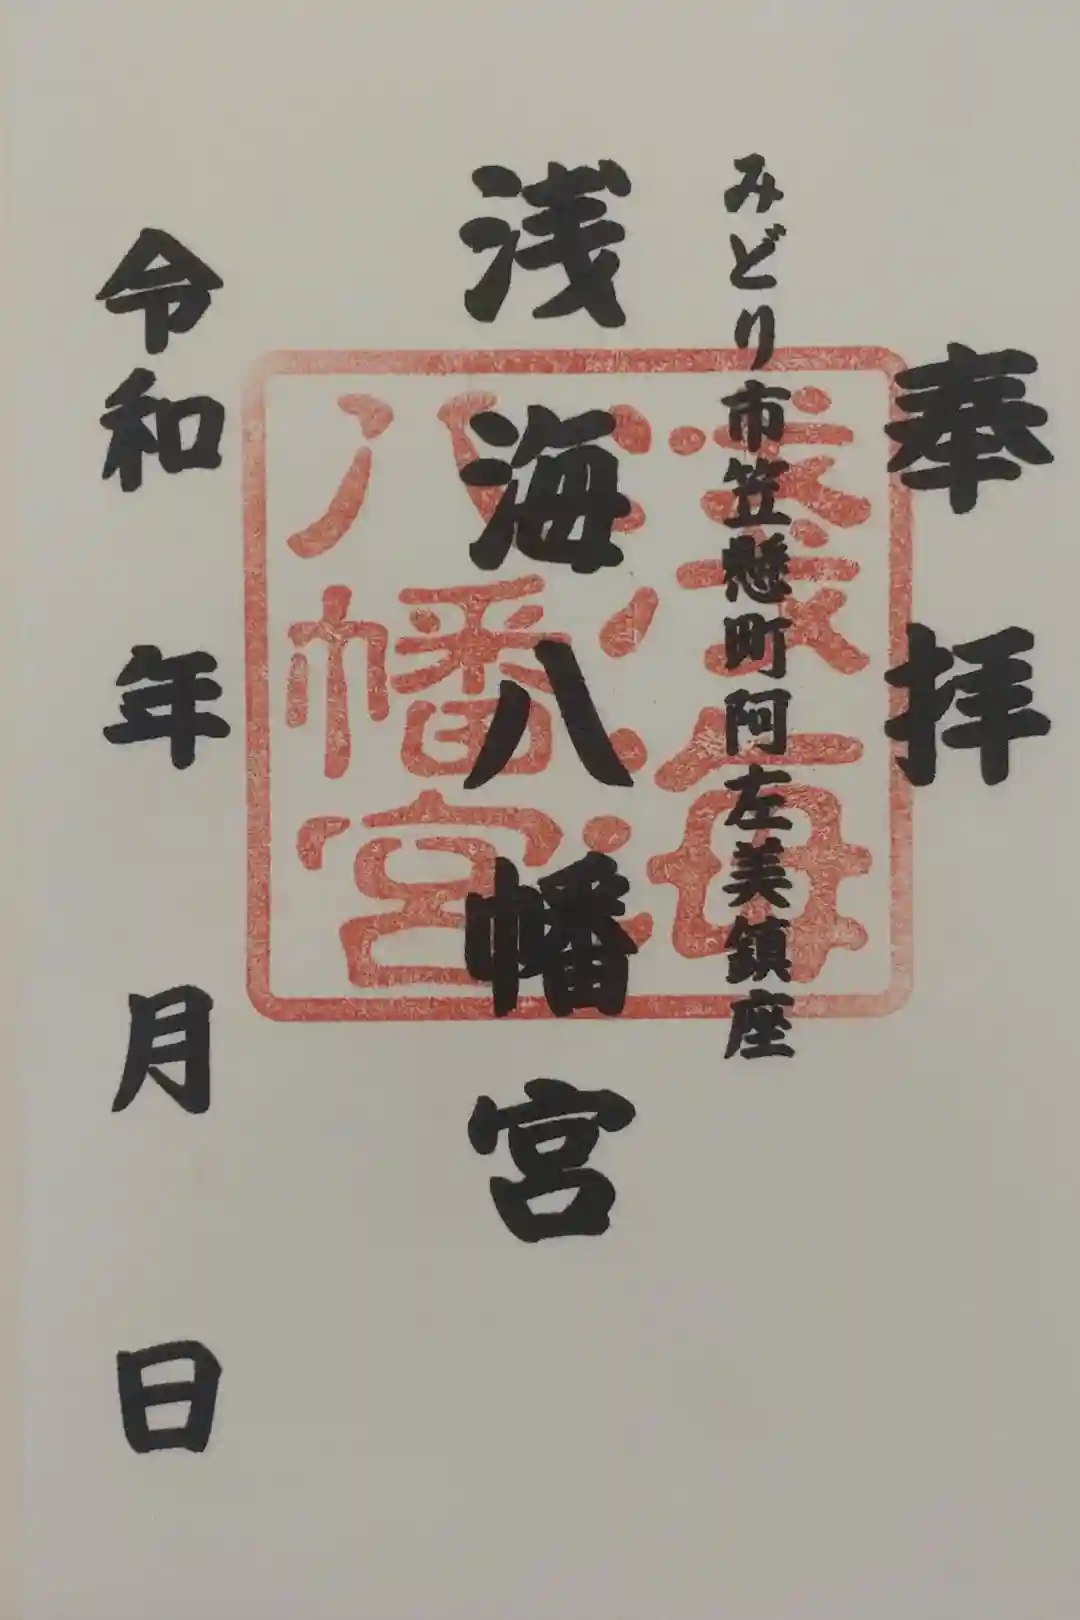 奉拝
みどり市笠懸町阿左美鎮座
浅海八幡宮
淺海
八幡宮
令和 年 月 日